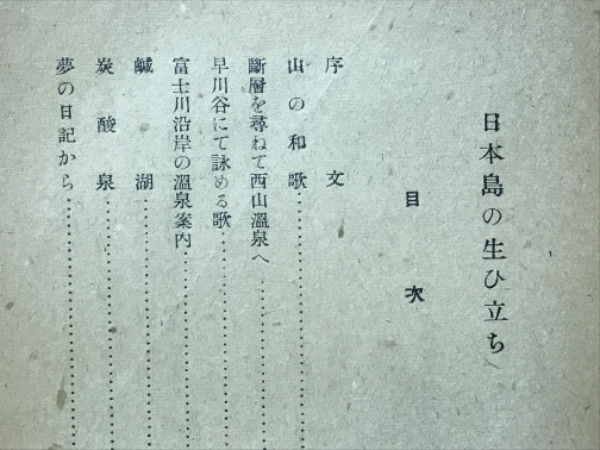 日本島の生ひ立ち
目次
序文
山の和歌
斷層を尋ねて西山溫泉へ
早川谷にて詠める歌
富士川沿岸の溫泉案内
鹹湖
炭酸泉
夢の日記から